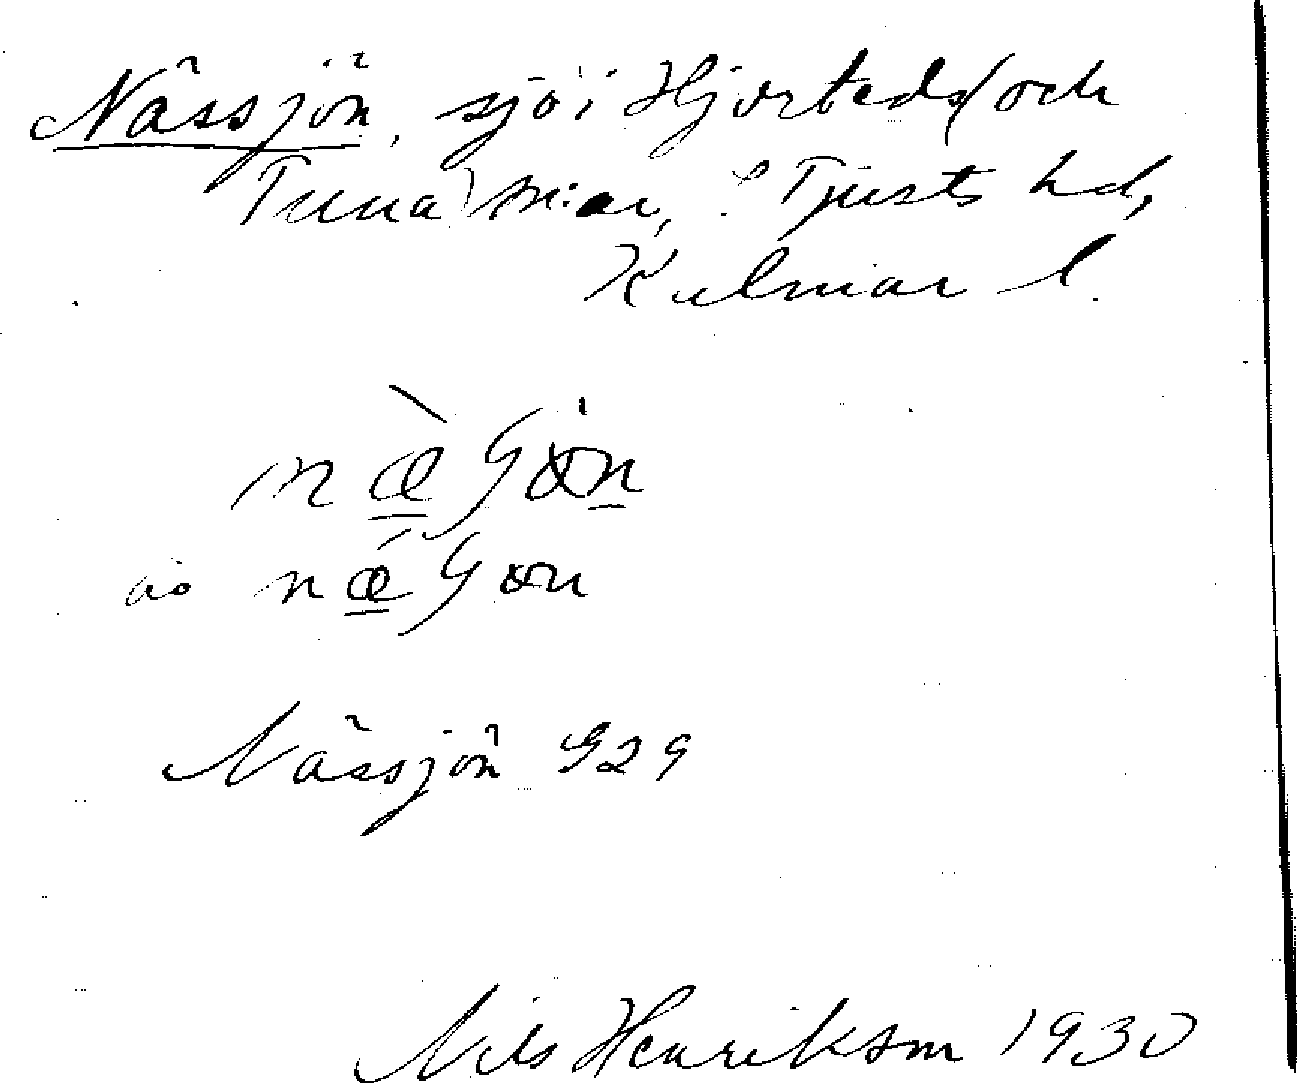 Nässjön, sjö i Hjorteds (och
Tuna) sn:ar, S Tjusts hd,
Kalmar l.
näGön
äö näGön
Nässjön 929
Nils Henriksson 1930